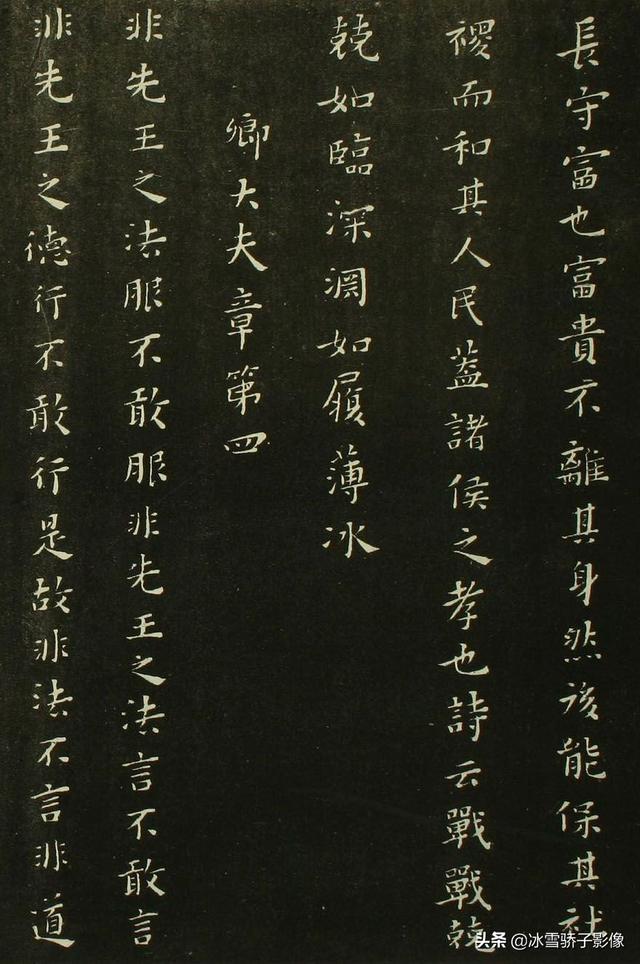 長守富也富貴不離其身然後能保其社
稷而和其人民蓋諸侯之孝也詩云戰戰兢
兢如臨深淵如履薄冰
卿大夫章第四
非先王之法服不敢服非先王之法言不敢言
非先王之德行不敢行是故非法不言非道
头条 @冰雪骄子影像